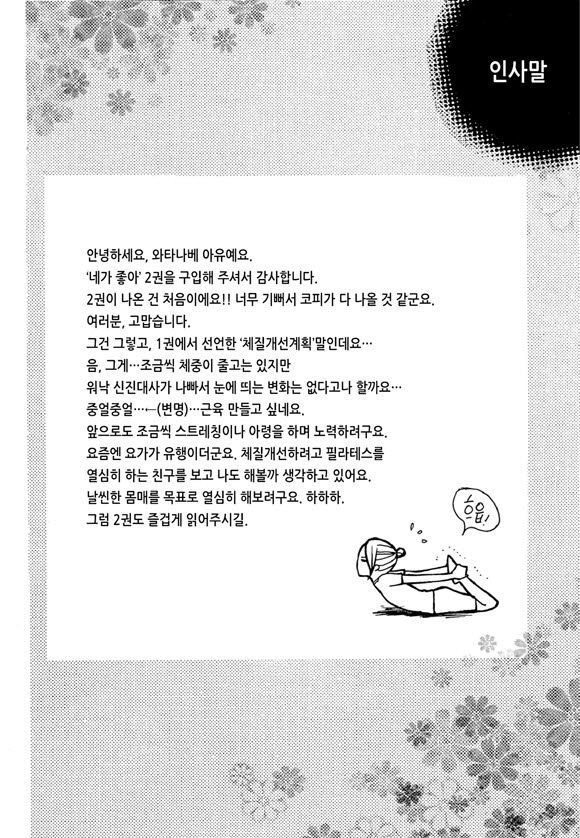 인사말
안녕하세요, 와타나베 아유예요.
‘네가 좋아’ 2권을 구입해 주셔서 감사합니다.
2권이 나온 건 처음이에요!! 너무 기뻐서 코피가 다 나올 것 같군요.
여러분, 고맙습니다.
그건 그렇고, 1권에서 선언한 ‘체질개선계획’말인데요…
음, 그게…조금씩 체중이 줄고는 있지만
워낙 신진대사가 나빠서 눈에 띄는 변화는 없다고나 할까요…
중얼중얼…←(변명)…근육 만들고 싶네요.
앞으로도 조금씩 스트레칭이나 아령을 하며 노력하려구요.
요즘엔 요가가 유행이더군요. 체질개선하려고 필라테스를
열심히 하는 친구를 보고 나도 해볼까 생각하고 있어요.
날씬한 몸매를 목표로 열심히 해보려구요. 하하하.
그럼 2권도 즐겁게 읽어주시길.
흐읍!